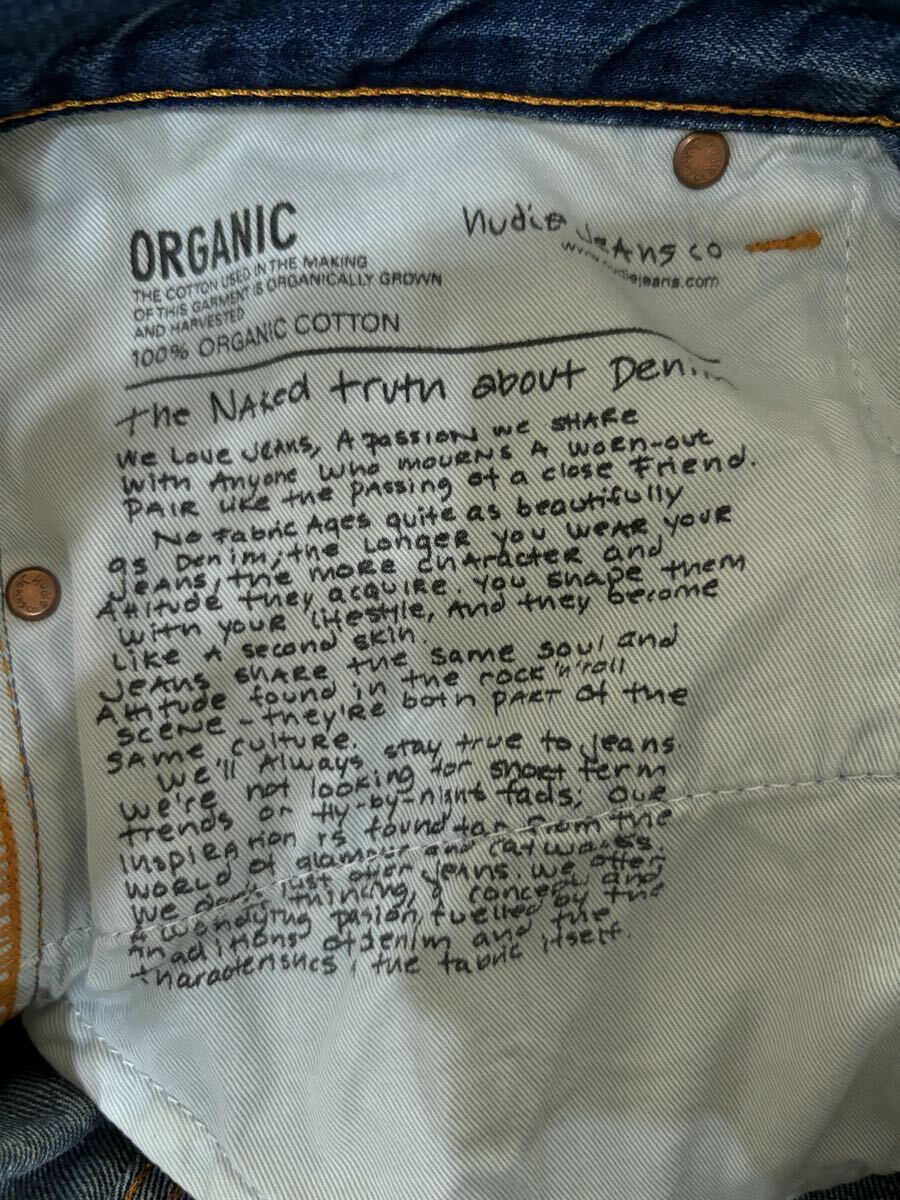 ORGANIC
THE COTTON USED IN THE MAKING
OF THIS GARMENT IS ORGANICALLY GROWN
AND HARVESTED
100% ORGANIC COTTON
Nudie Jeans co
www.nudiejeans.com
The Naked truth about Denim
We Love Jeans, A passion we share
with Anyone who mourns a worn-out
pair like the passing of a close friend.
No fabric Ages quite as beautifully
as Denim, the longer you wear your
jeans, the more character and
Attitude they acquire. You shape them
with your lifestyle, And they become
like a second skin.
Jeans share the same soul and
Attitude found in the rock'n'roll
scene - they're both part of the
same culture.
We'll Always stay true to jeans.
We're not looking for short term
trends or fly-by-night fads; Our
inspiration is found far from the
world of glamour and catwalks.
We don't just offer jeans. We offer
A thinking, A concept and
A pasion fuelled by the
traditions of denim and the
characteristics the fabric itself.
Nudie
Jeans co
Nudie
Jeans co